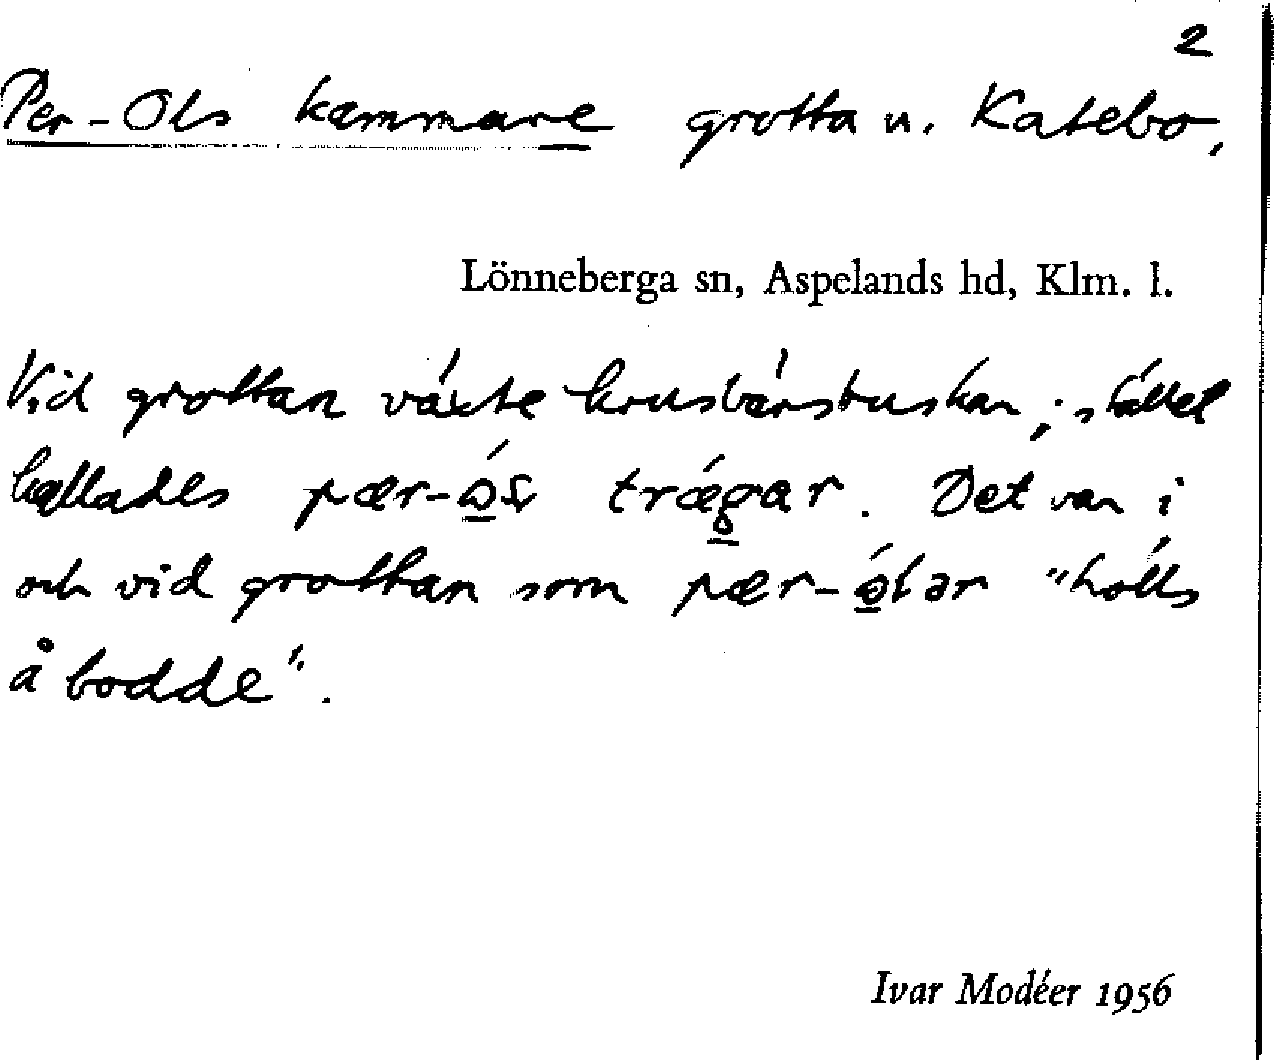 2
Per-Ols kammare grotta u. Katebo,
Lönneberga sn, Aspelands hd, Klm. l.
Vid grottan växte krusbärsbuskar; stället
kallades pær-ós trǽgar. Det var i
och vid grottan som pær-ólər "hölls
å bodde".
Ivar Modéer 1956